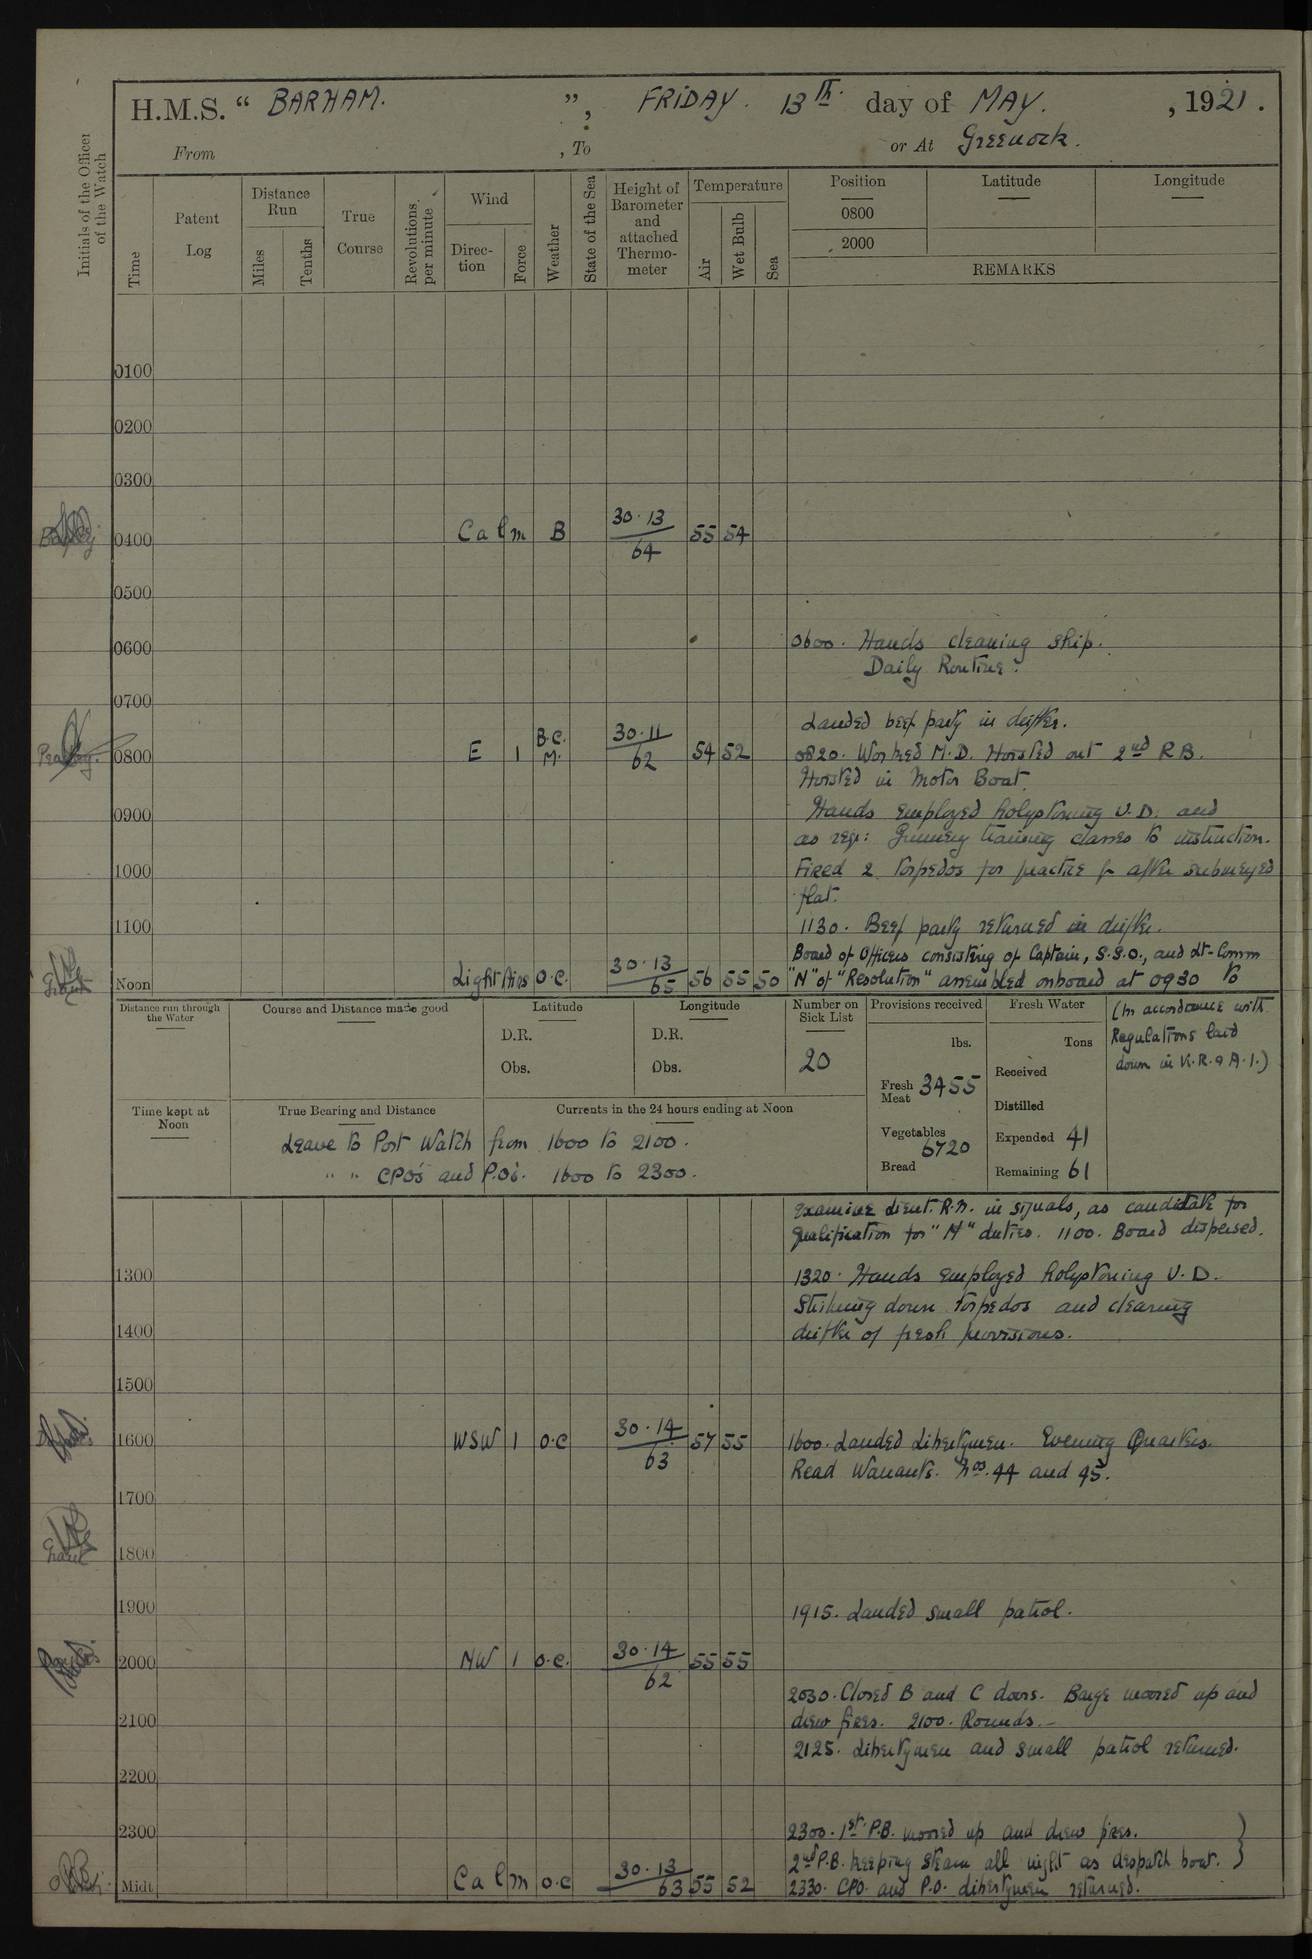 H.M.S. “ BARHAM. ”, FRIDAY. 13th. day of MAY. , 1921.
From , To or At Greenock.
Initials of the Officer of the Watch
Time
Patent Log
Distance Run
Miles
Tenths
True Course
Revolutions per minute
Wind
Direction
Force
Weather
State of the Sea
Height of Barometer and attached Thermometer
Temperature
Air
Wet Bulb
Sea
Position Latitude Longitude
0800
2000
REMARKS
0100
0200
0300
0400 Calm B 30.13/64 55 54
0500
0600 0600. Hands cleaning ship.
Daily Routine.
0700
Landed beef party in drifter.
0800 E 1 B.C. M. 30.11/62 54 52 0820. Worked M.D. Hoisted out 2nd R B.
Hoisted in Motor Boat.
0900 Hands employed holystoning U.D. and
as req: Gunnery training classes to instruction.
1000 Fired 2 Torpedos for practice fr after submerged
flat.
1100 1130. Beef party returned in drifter.
Board of Officers consisting of Captain, S.S.O., and Lt-Comm
Noon Light Airs O.C. 30.13/65 56 55 50 "N" of "Resolution" assembled onboard at 0930 to
Distance run through the Water
Course and Distance made good
Latitude
D.R.
Obs.
Longitude
D.R.
Obs.
Number on Sick List
20
Provisions received
lbs.
Fresh Meat 3455
Vegetables 6720
Bread
Fresh Water
Tons
Received
Distilled
Expended 41
Remaining 61
(In accordance with
Regulations laid
down in K.R. & A.I.)
Time kept at Noon
True Bearing and Distance
Currents in the 24 hours ending at Noon
Leave to Port Watch from 1600 to 2100.
" " CPO's and P.O's. 1600 to 2300.
examine Lieut. R.N. in signals, as candidate for
qualification for "N" duties. 1100. Board dispersed.
1300 1320. Hands employed holystoning U.D.
Striking down Torpedos and clearing
1400 drifter of fresh provisions.
1500
1600 WSW 1 O.C 30.14/63 57 55 1600. Landed Libertymen. Evening Quarters.
Read Warrants. Nos. 44 and 45.
1700
1800
1900 1915. Landed small patrol.
2000 NW 1 O.C. 30.14/62 55 55
2030. Closed B and C doors. Barge moored up and
2100 drew fires. 2100. Rounds.
2125. Libertymen and small patrol returned.
2200
2300 2300. 1st P.B. moored up and drew fires.
2nd P.B. keeping steam all night as despatch boat.
Midt Calm O.C 30.13/63 55 52 2330. CPO. and P.O. Libertymen returned.